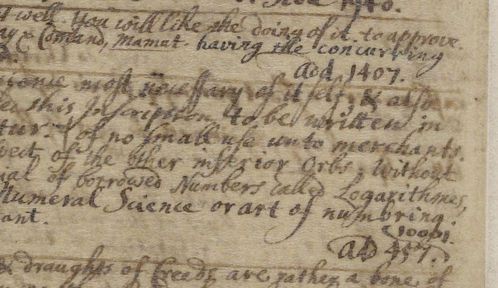 well. You will like the doing of it to approve.
& Comand, Mamat - having the concurring
Add. 1407.
most necessary of it self, & also
this Inscription, to be written in
of no small use unto merchants.
of the other inferior Orbs, without
of borrowed Numbers called Logarithmes,
Numeral Science or art of numbring.
ant.
draughts of Creeds are rather a bone of